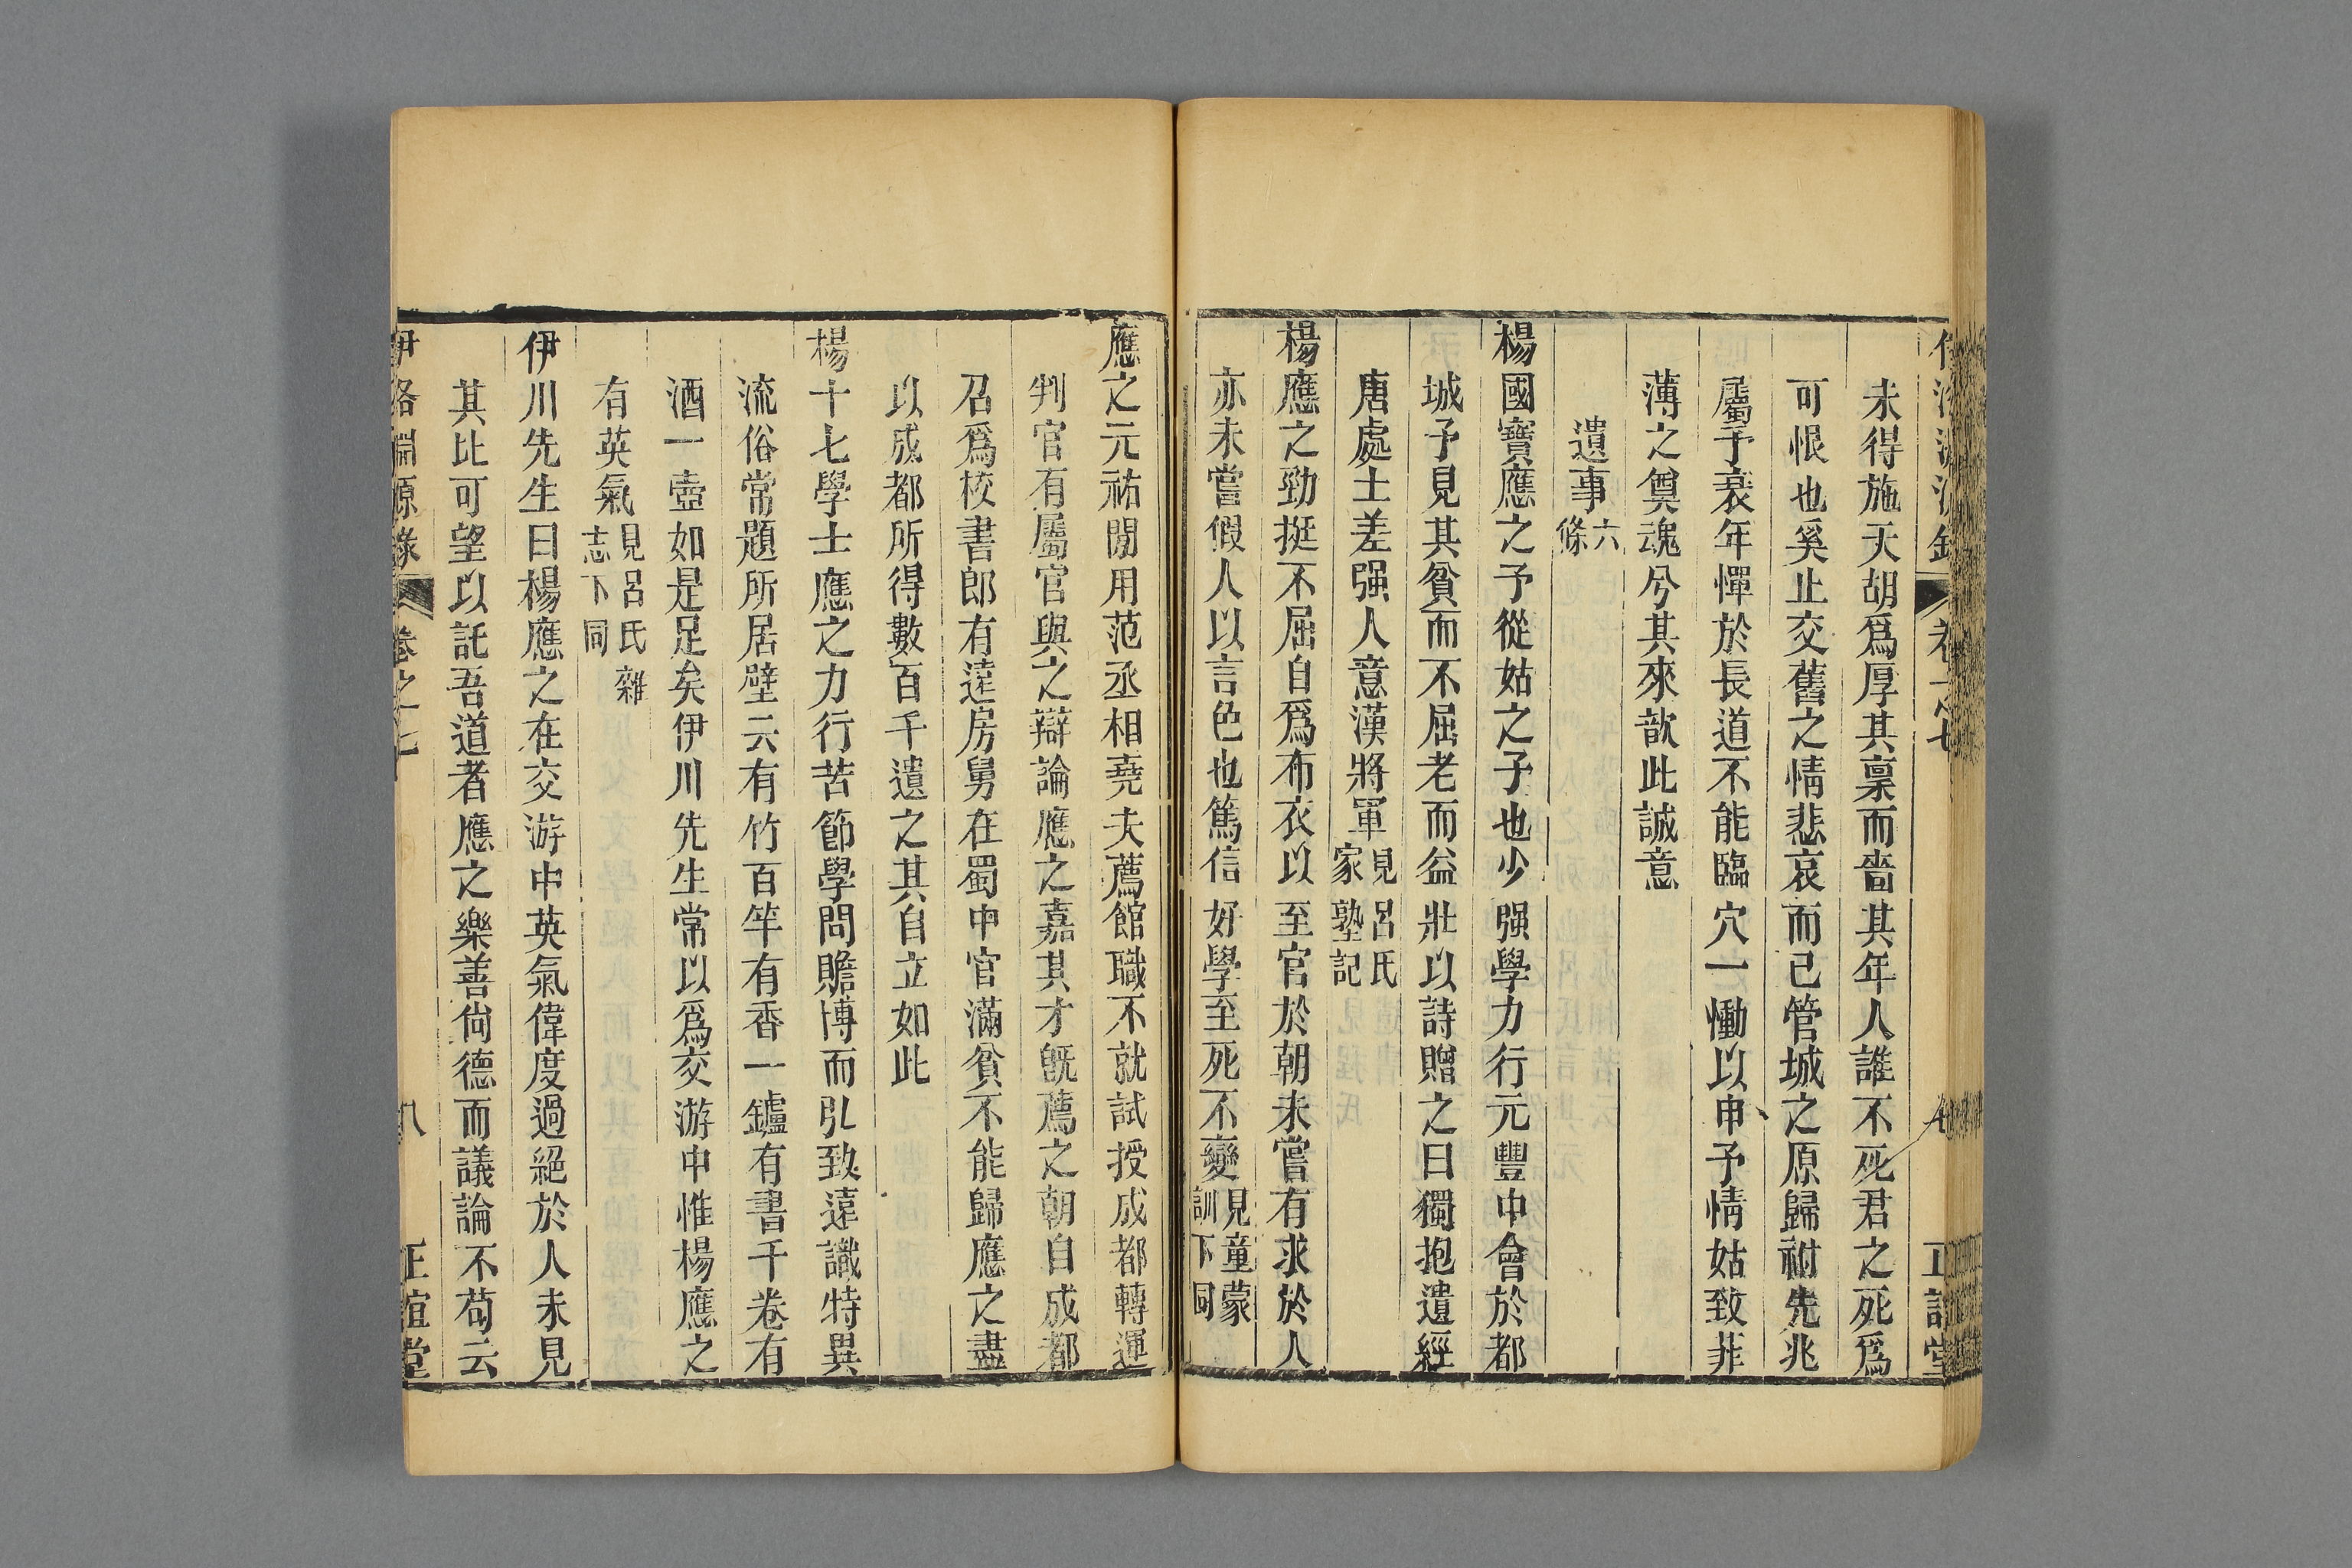 未得施天胡爲厚其稟而嗇其年人誰不死君之死爲
可恨也奚止交舊之情悲哀而已管城之原歸祔先兆
屬予衰年憚於長道不能臨穴一慟以申予情姑致菲
薄之奠魂兮其來歆此誠意
遺事六條
楊國寶應之予從姑之子也少强學力行元豐中會於都
城予見其貧而不屈老而益壯以詩贈之曰獨抱遺經
唐處士差强人意漢將軍見呂氏家塾記
楊應之勁挺不屈自爲布衣以至官於朝未嘗有求於人
亦未嘗假人以言色也篤信好學至死不變見童蒙訓下同
應之元祐間用范丞相堯夫薦館職不就試授成都轉運
判官有屬官與之辯論應之嘉其才旣薦之朝自成都
召爲校書郎有遠房舅在蜀中官滿貧不能歸應之盡
以成都所得數百千遺之其自立如此
楊十七學士應之力行苦節學問贍博而弘致遠識特異
流俗常題所居壁云有竹百竿有香一鑪有書千卷有
酒一壺如是足矣伊川先生常以爲交游中惟楊應之
有英氣見呂氏雜志下同
伊川先生曰楊應之在交游中英氣偉度過絕於人未見
其比可望以託吾道者應之樂善尙德而議論不苟云
伊洛淵源錄 卷之七 八 正誼堂